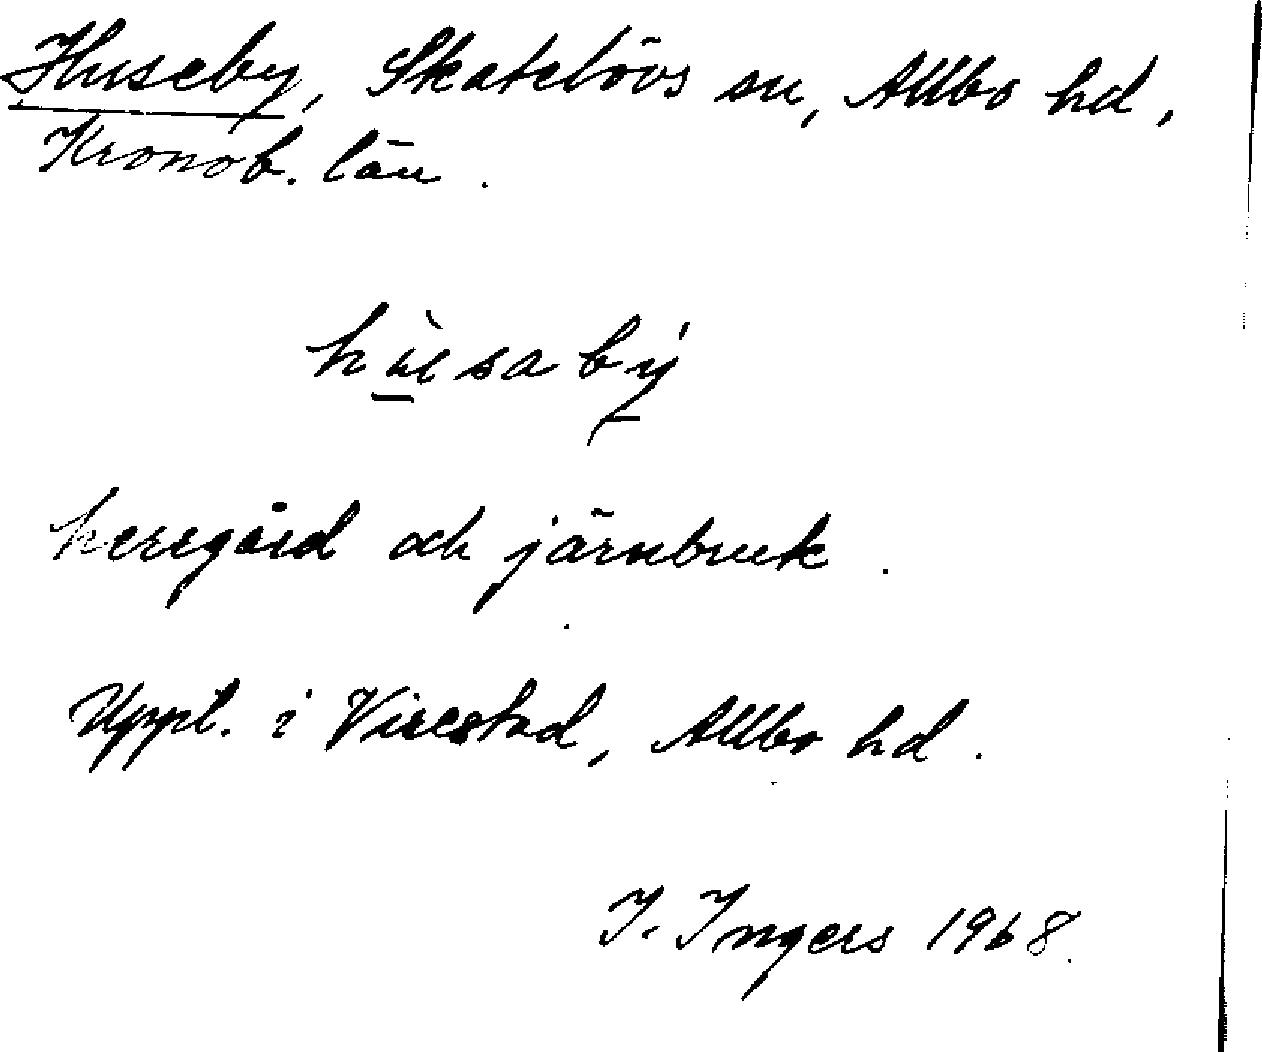 Huseby, Skatelövs sn, Allbo hd,
Kronob. län.
hùsabý
herrgård och järnbruk.
Uppl. i Virestad, Allbo hd.
I. Ingers 1968.